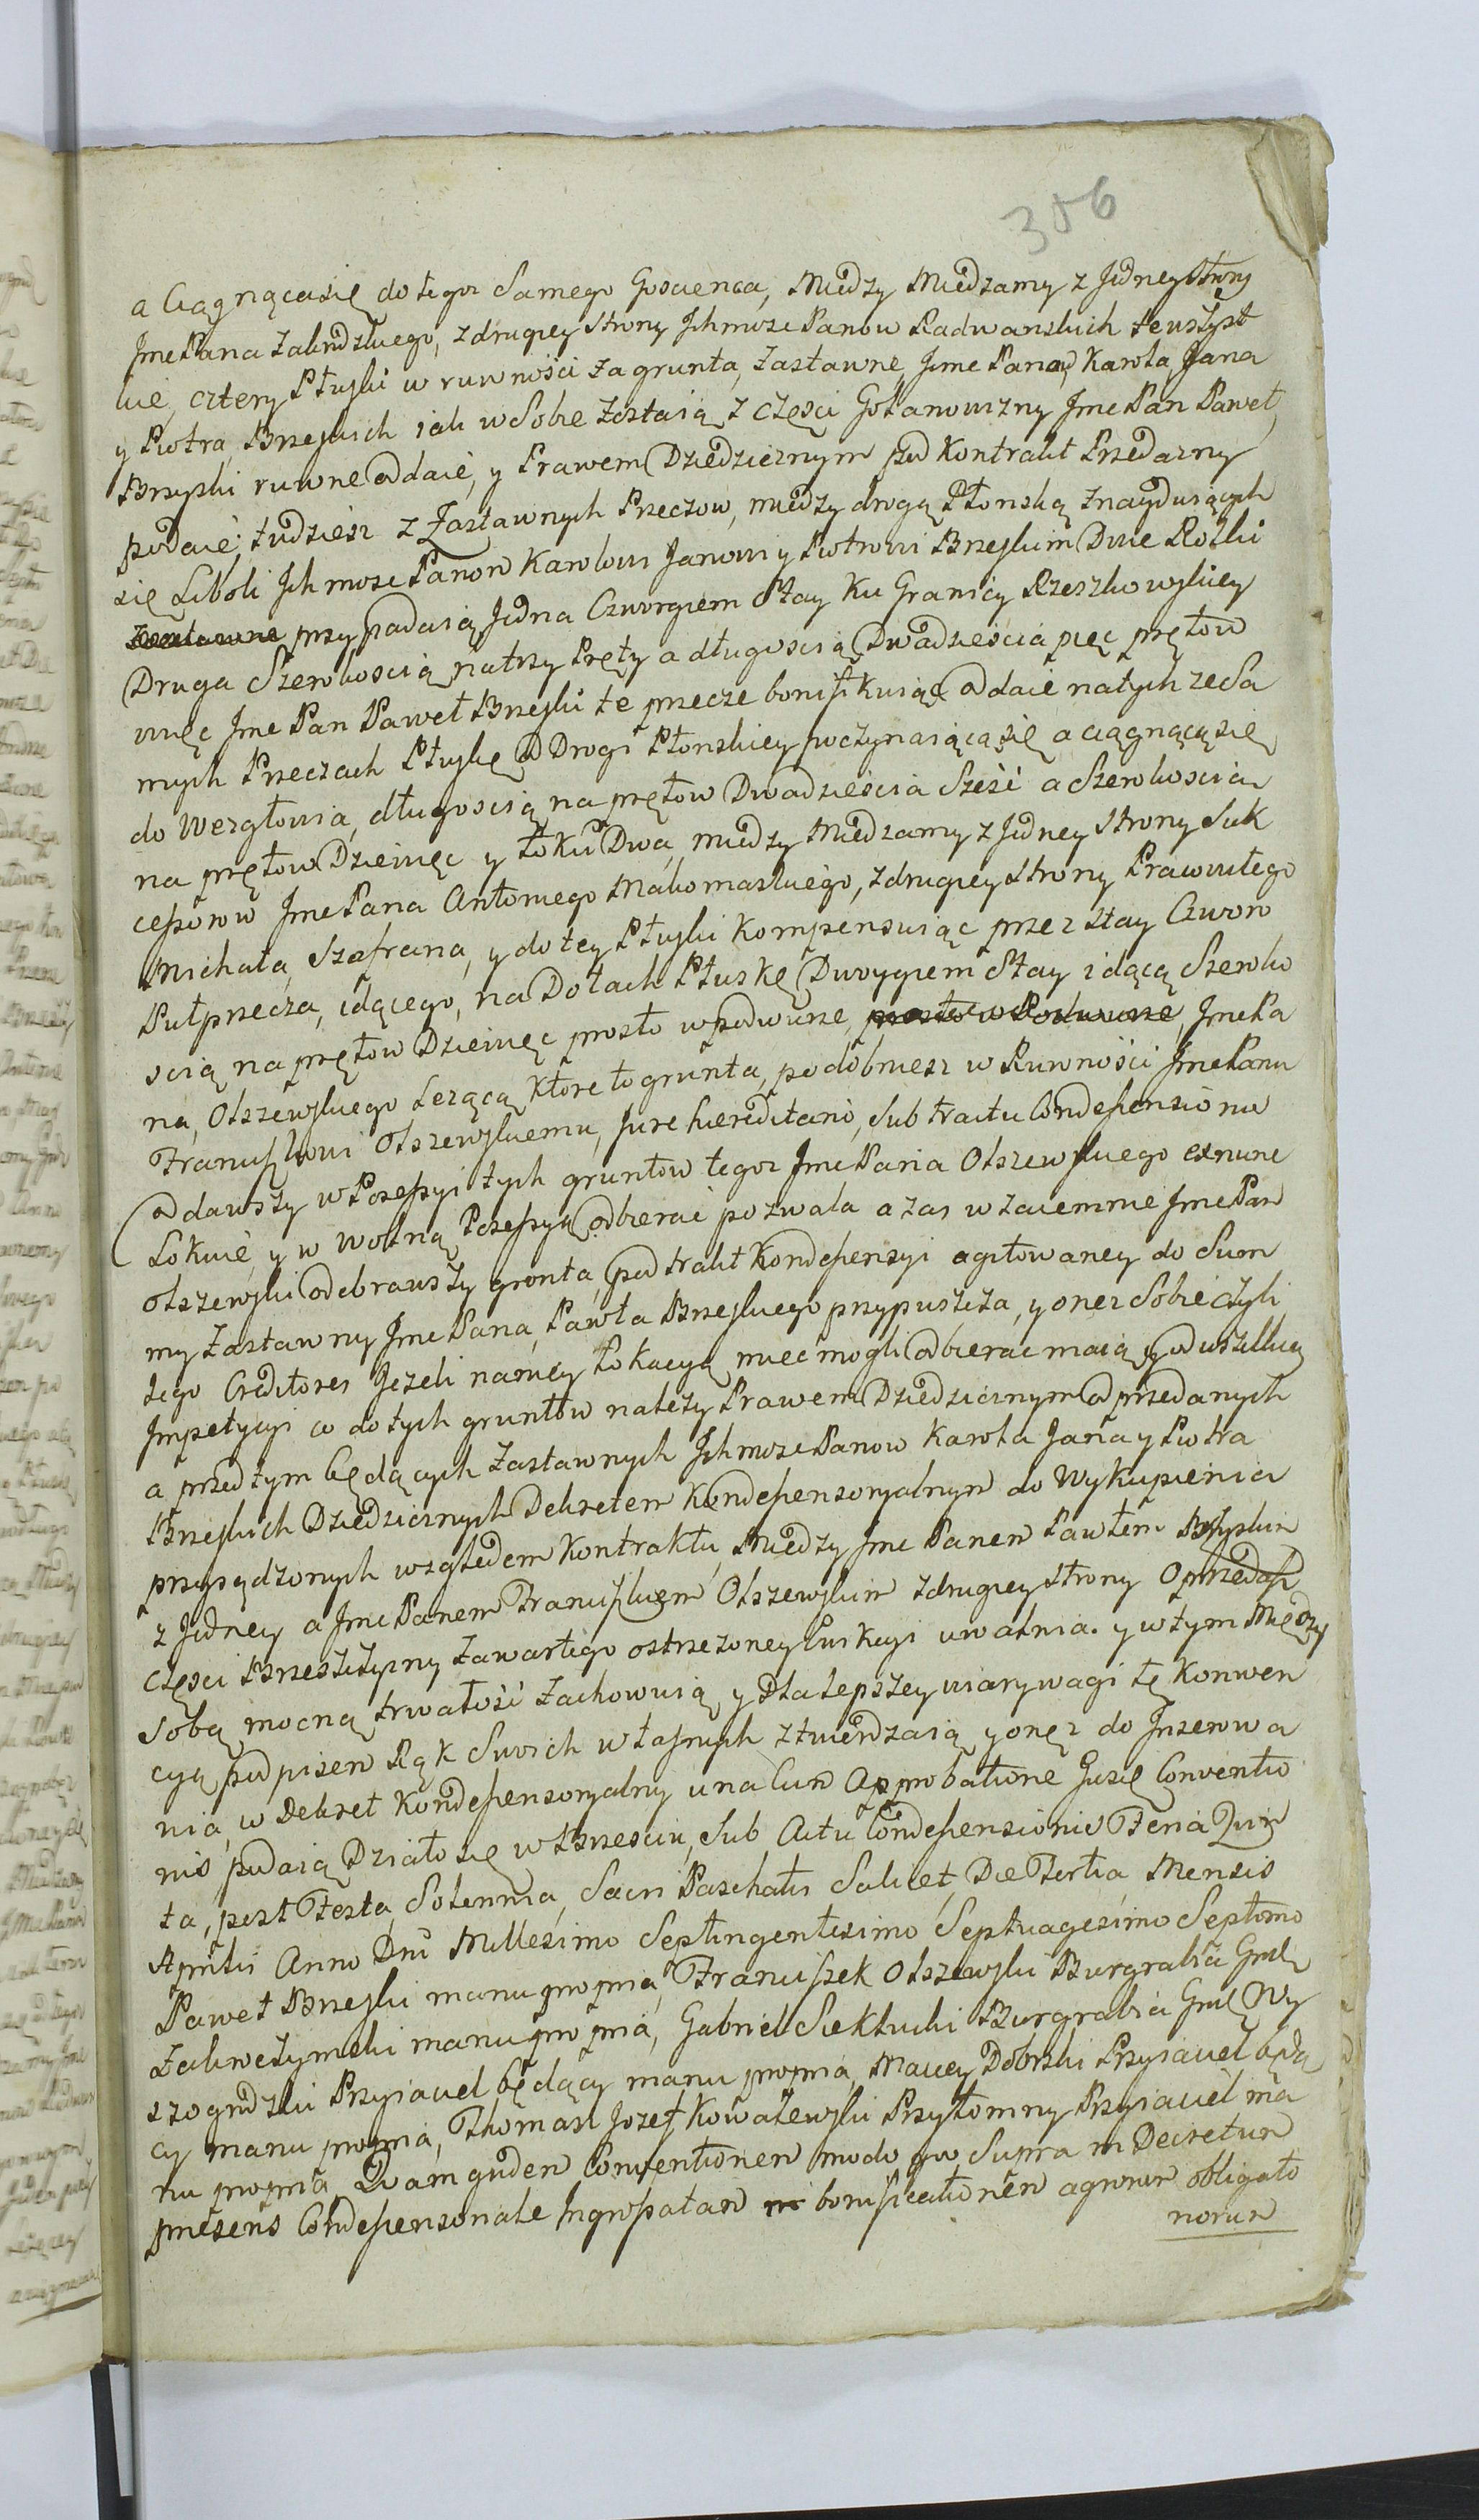 306
a Ciągnącasię do tegoż Samego Goscienca, Między Miedzamy z Jedney strony
Jme Pana Zalendzkiego, z drugiey strony Jchmosc Panow Radwanskich te wszyst
kie, cztery Płuski w rowności za grunta, zastawne, Jmc Panow Karola, Jana
y Piotra, Brzeskich iak w Sobie zostaią z części Gołanowizny Jmc Pan Paweł
Brzyski ruwne oddaie, y Prawem Dziedzicznym pod Kontrakt Przedazny
podaie, tudziesz z Zastawnych Przeczow, między drogą Płonską znayduiących
się Liboli Jchmosc Panow Karolowi Janowi y Piotrowi Brzeskim Dwie Rolki
przypadaią Jedna Czworgiem Stay ku Granicy Rzeszkowskiey
Druga Szerokoscią natrzy Pręty a długoscią Dwadzieścia pięc prętow
więc Jmc Pan Paweł Brzeski te przecze bonifikuiąc oddaie natych zeSa
mych Przeczach Płuskę od Drogi Płonskiey poczynaiącąsię a ciągnącąsię
do Wezgłowia, długoscią na prętow Dwadzieścia Sześć a Szerokoscia
na prętow Dziewięc y łokci Dwa, między Miedzamy z Jedney strony Suk
cessorow Jmc Pana Antoniego Makomaskiego, z drugiey strony Prawowitego
Michała, Szafrana, y do tey Płuski Kompensuiąc przez stay Czworo
Pułprzecza, idącego, na Dołach Płuskę Dwoygiem Stay idącą Szeroko
scią na prętow Dziewięc prosto w podworze, Jmc Pa
na, Olszewskiego Lezącą, które to grunta, podobniesz w Rowności Jmc Panu
Franciszkowi Olszewskiemu, Jure hereditario, sub tractu Condescensionis
oddawszy w Possessyi tych gruntow tegoz Jmc Pana Olszewskiego exnunc
Lokuie, y w wolną Possessyą odbierać pozwala a zas wzaiemnie Jmc Pan
Olszewski odebrawszy gronta, pod trakt Kondescensyi agitowaney do Sum
my zastawny Jmc Pana, Pawła Brzeskiego przypuszcza, y onez Sobie czyli
Jego Creditores Jezeli naniey Lokacyą miec mogli odbierac maią, y od wszelkiey
Impetycyi co do tych gruntow należy Prawem Dziedzicznym odprzedanych
a przed tym będących zastawnych Jchmosc Panow Karola Jana y Piotra
Brzeskich Dziedzicznych Dekretem Kondescensoryalnym do Wykupienia
przysądzonych względem Kontraktu, Między Jmc Panem Pawłem Brzyskim
z Jedney a Jmc Panem Franciszkiem Olszewskim z drugiey strony O przedasz
części Brzeszczyzny zawartego ostrzezoney Ewikcyi uwalnia. y w tym Między
Sobą mocną trwałość zachowuią y Dla lepszey wiary wagi tę Konwen
cyą podpisem Rąk Swoich własnych ztwierdzaią y onęz do Inserowa
nia, w Dekret Kondescensoryalny una Cum Approbatione Jusię Conventio
nis podaią Działo się w Brzesciu, sub Actu Condescensionis Feria Quin
ta, post Festa Solennia, Sacri Paschatis Salicet, Die Tertia Mensis
Aprilis Anno Dni Millesimo Septingentesimo Septuagesimo Septimo
Paweł Brzeski manu propria, Franciszek Olszewski Burgrabia Grdz
Zakroczymski manu propria, Gabriel Siekłucki Burgrabia Grdz Wy
szogrodzki Przyiaciel będący manu propria, Maciey Dobrski Przyiaciel będą
cy manu propria, Thomasz Jozef Kowalewski Przytomny Przyiaciel ma
nu propria. Quam quidem Conventionem modo quo Supra in Decretum
presens Condescensoriale Ingrossatam bonificationem agrorum obligato
riorum